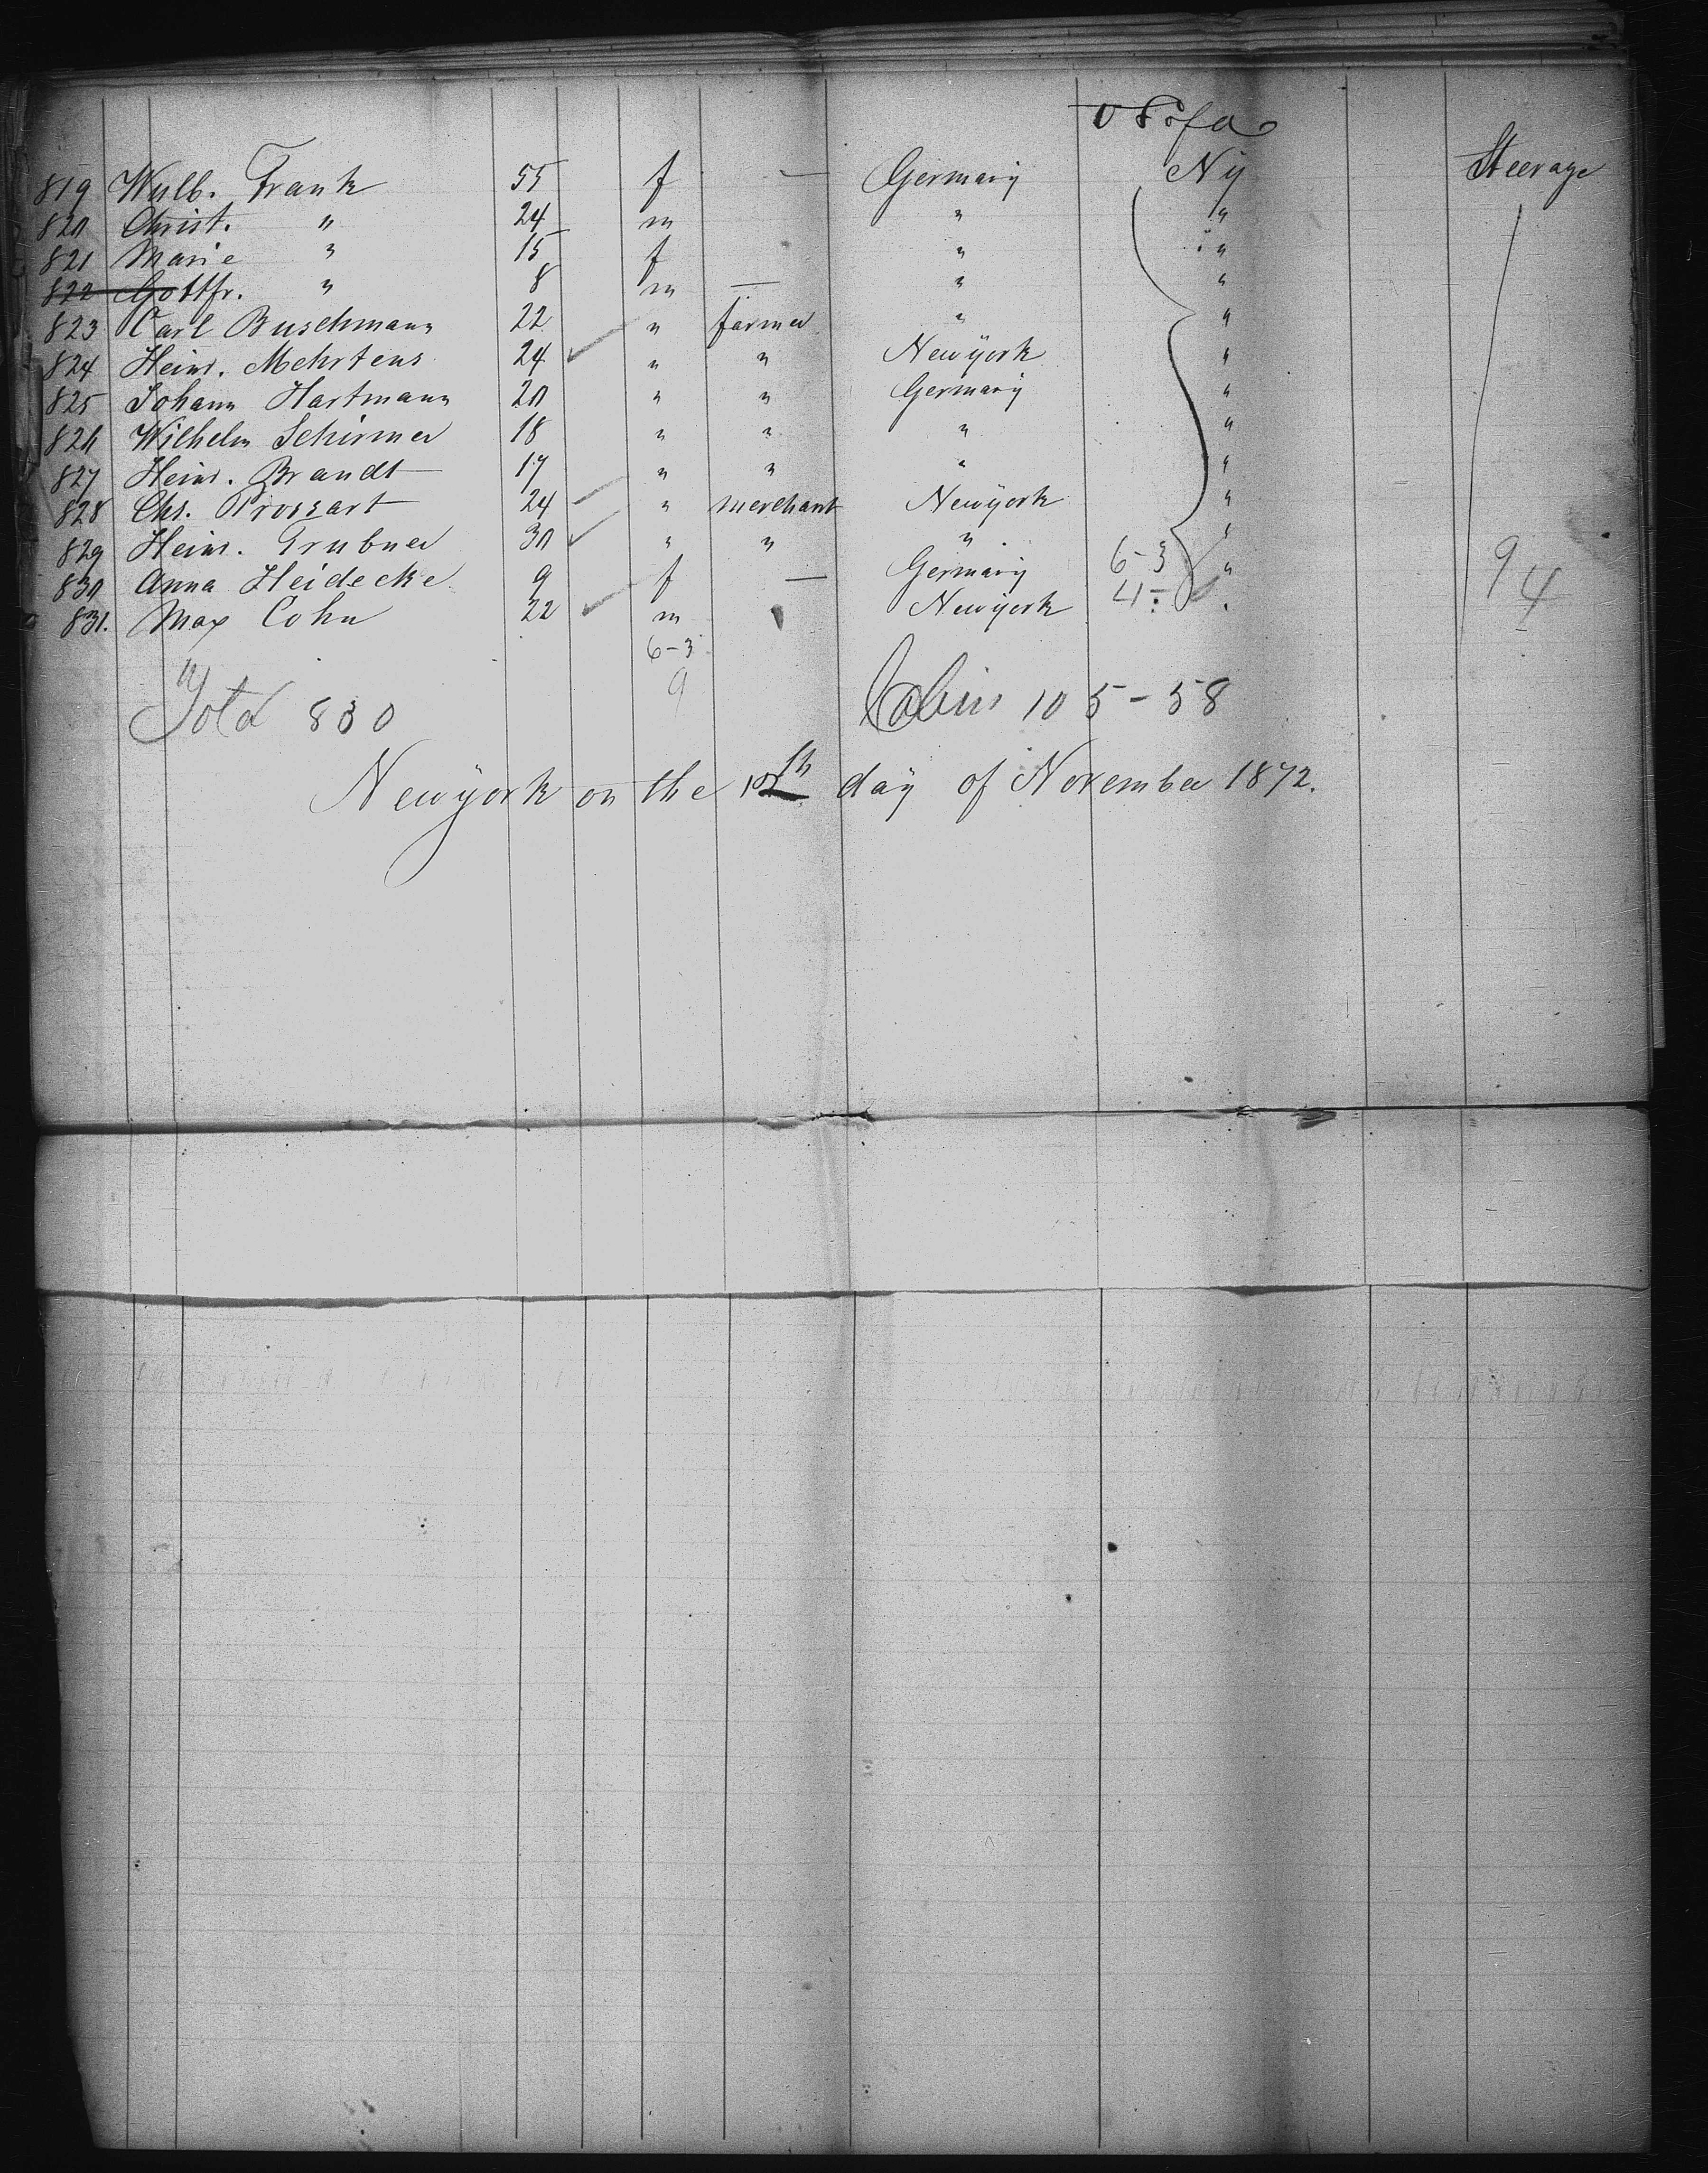 819 Wulb. Frank 55 f — Germany Ny Steerage
820 Christ. " 24 m " "
821 Marie " 15 f " "
822 Gottfr. " 8 m — " "
823 Carl Buschmann 22 " farmer " "
824 Heinr. Mehrtens 24 ✓ " " Newÿork "
825 Johann Hartmann 20 " " Germany "
826 Wilhelm Schirmer 18 " " " "
827 Heinr. Brandt 17 " " " "
828 Chs. 24 " merchant Newÿork "
829 Heinr. Grubner 30 ✓ " " " "
830 Anna Heidecke 9 f — Germany 6-3 " 9
831. Max Cohn 22 ✓ m Newÿork 4- " 4
6-3
9
Total 830 Cabin 105-58
Newÿork on the day of November 1872.